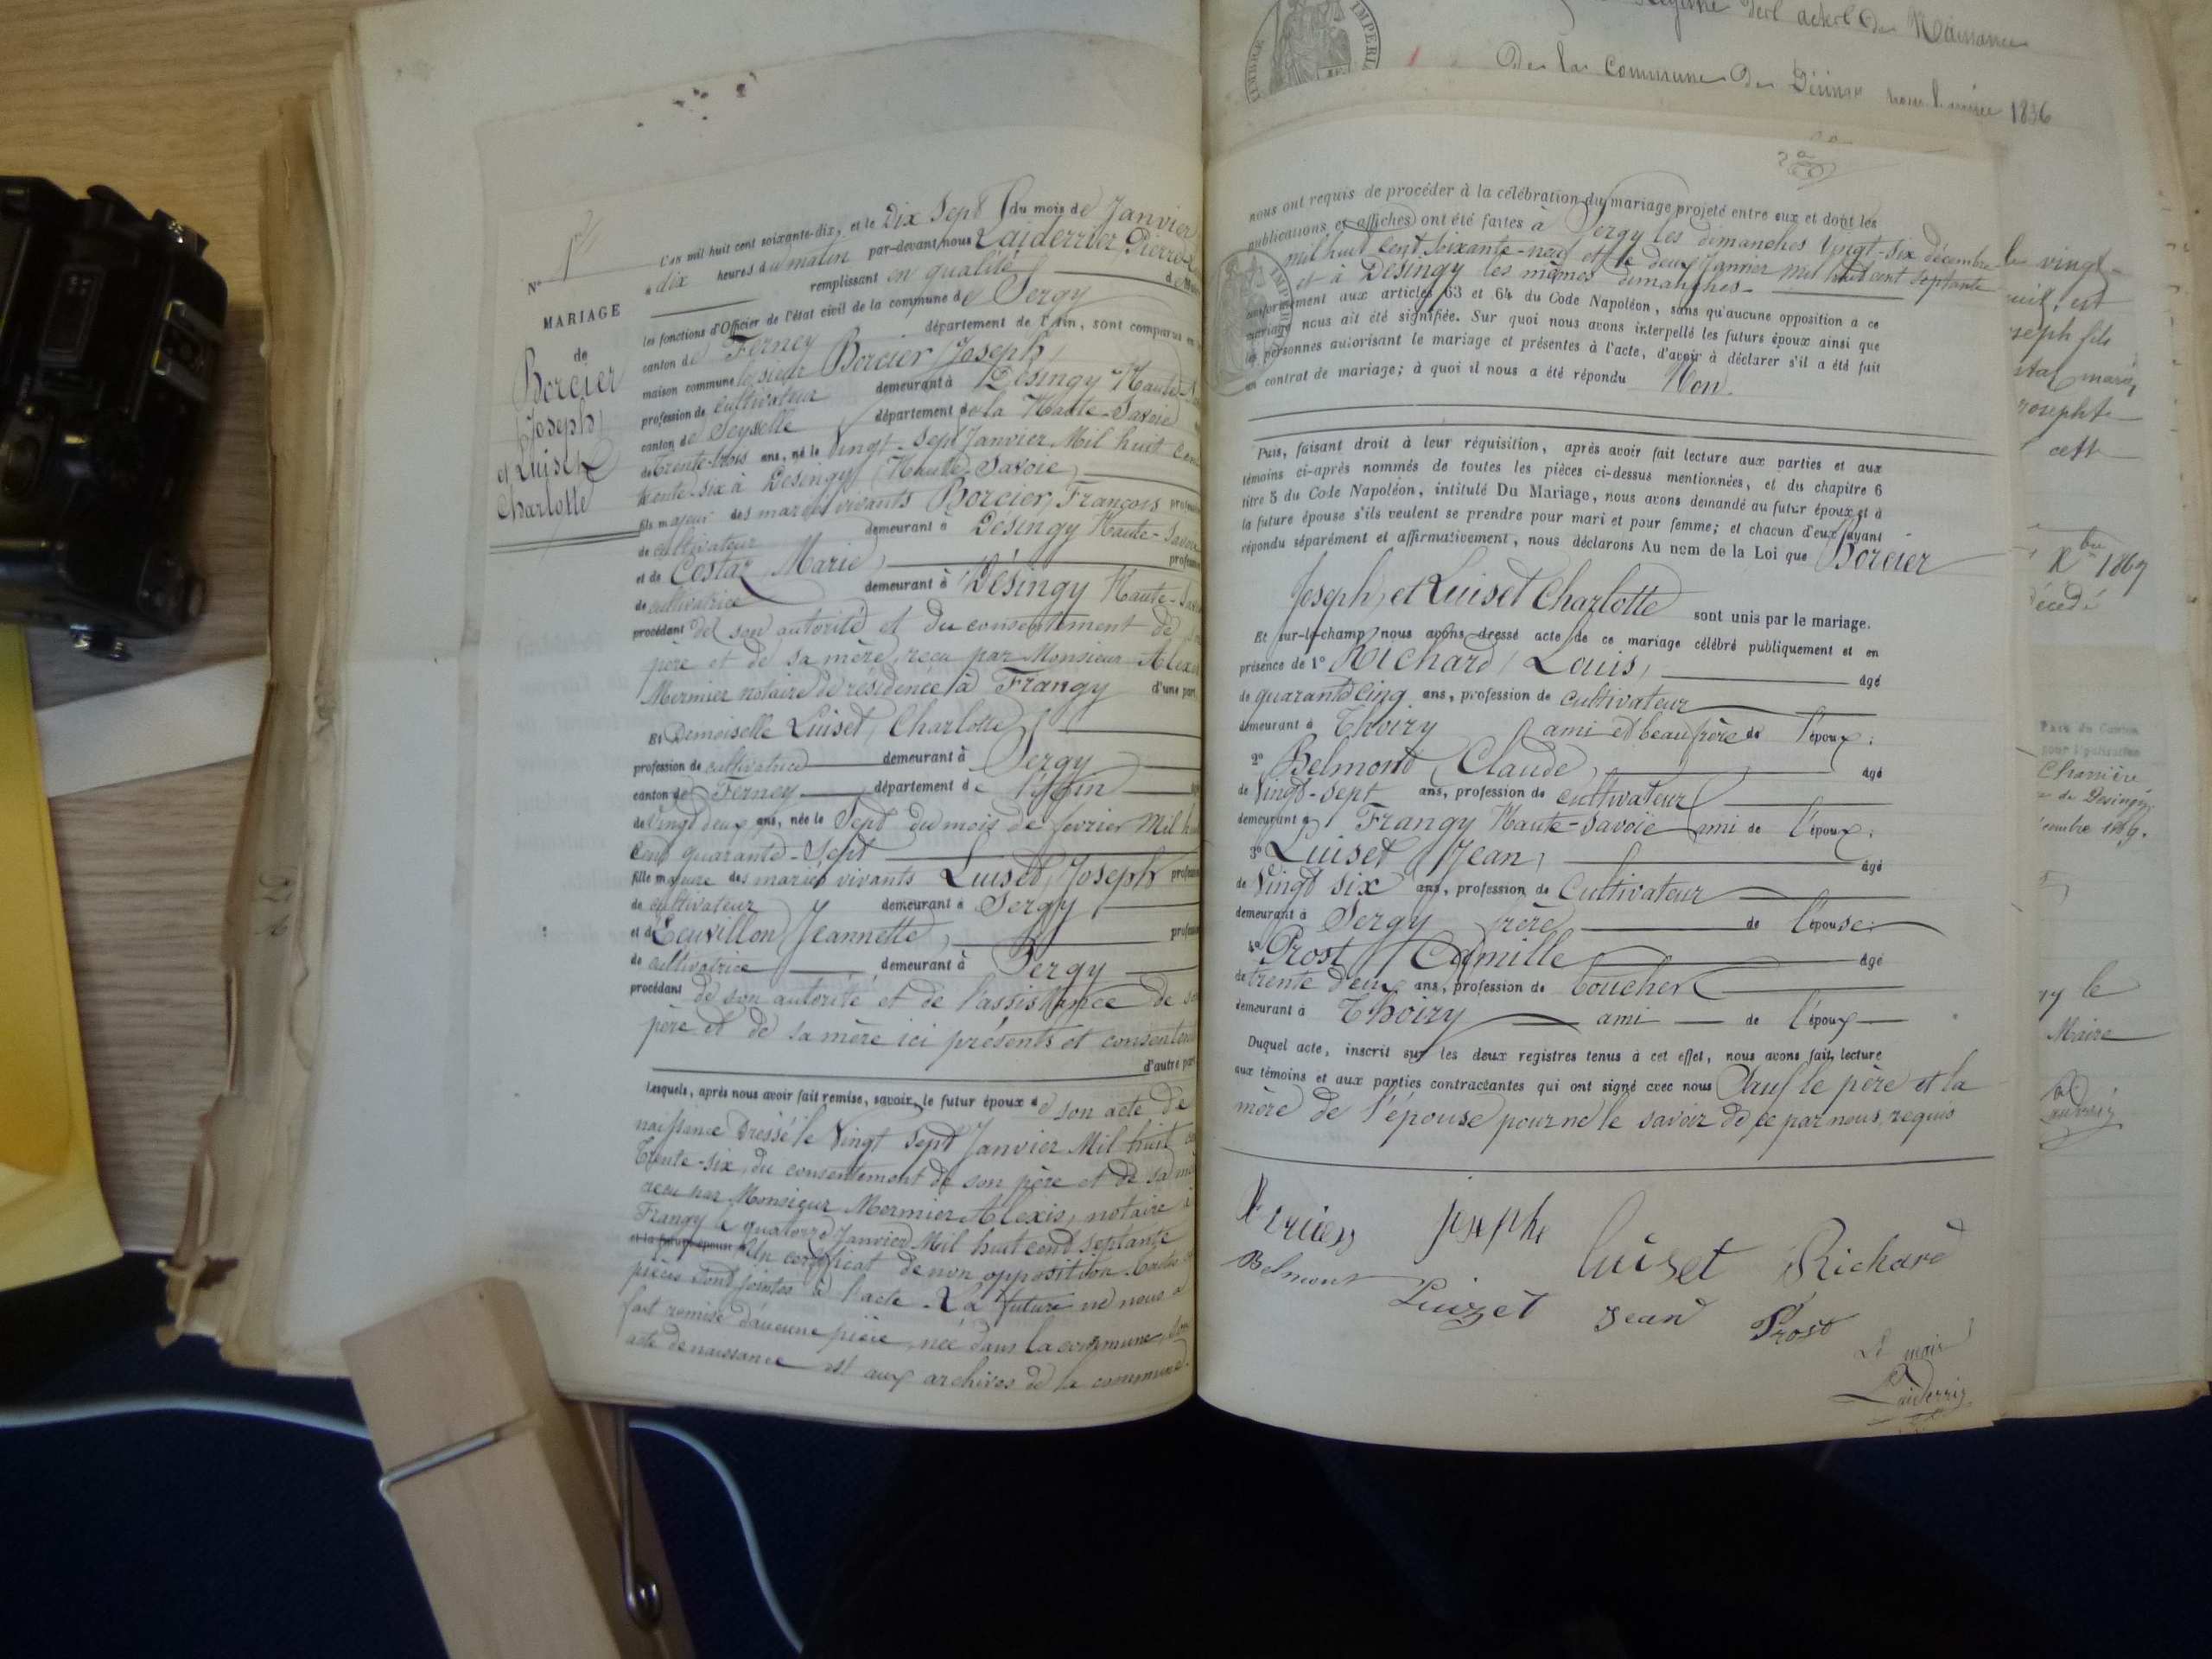 N° 1er
MARIAGE
de
Borcier
Joseph
et Luiset
Charlotte
L'an mil huit cent soixante-dix, et le Dix Sept du mois de Janvier
à dix heures du matin par-devant nous Laiderrier Pierre
remplissant en qualité de
les fonctions d'Officier de l'état civil de la commune de Sergy
canton de Ferney département de l'Ain, sont comparus en
maison commune le sieur Borcier Joseph
profession de cultivateur demeurant à Désingy Haute-
canton de Seyselle département de la Haute-Savoie
de Trente-trois ans, né le Vingt-Sept Janvier Mil huit Cent
trente-six à Desingy (Haute-Savoie)
fils majeur des mariés vivants Borcier, François profession
de cultivateur demeurant à Désingy Haute-Savoie
et de Costaz Marie profession
de cultivatrice demeurant à Désingy Haute-
procédant de son autorité et du consentement de
père et de sa mère, reçu par Monsieur Alexis
Mermier notaire de résidence à Frangy d'une part.
Et Demoiselle Luiset, Charlotte
profession de cultivatrice demeurant à Sergy
canton de Ferney département de l'Ain
de Vingt deux ans, née le Sept du mois de fevrier Mil huit
Cent quarante-Sept
fille majeure des mariés vivants Luiset, Joseph profession
de cultivateur demeurant à Sergy
et de Jeannette, profession
de cultivatrice demeurant à Sergy
procédant de son autorité et de l'assistance de son
père et de sa mère ici présents et consentents
d'autre part
Lesquels, après nous avoir fait remise, savoir, le futur époux de son acte de
naissance Dressé le Vingt Sept Janvier Mil huit cent
Trente-six, du consentement de son père et de sa mère
reçu par Monsieur Mermier Alexis, notaire à
Frangy le quatorze Janvier Mil huit cent septante
et la future épouse Un certificat de non opposition
pièces sont jointes à l'acte. La future ne nous a
fait remise d'aucune pièce, née dans la commune, son
acte de naissance est aux archives de la commune.
Registre des actes De Naissance
De la Commune De pour l'année 1836
TIMBRE IMPERIAL
nous ont requis de procéder à la célébration du mariage projeté entre eux et dont les
publications et affiches ont été faites à Sergy les dimanches Vingt-six décembre
mil huit Cent soixante-neuf et le deux Janvier mil huit cent septante
et à Désingy les mêmes dimanches.
conformément aux articles 63 et 64 du Code Napoléon, sans qu'aucune opposition a ce
mariage nous ait été signifiée. Sur quoi nous avons interpellé les futurs époux ainsi que
les personnes autorisant le mariage et présentes à l'acte, d'avoir à déclarer s'il a été fait
un contrat de mariage; à quoi il nous a été répondu Non.
Puis, faisant droit à leur réquisition, après avoir fait lecture aux parties et aux
témoins ci-après nommés de toutes les pièces ci-dessus mentionnées, et du chapitre 6
titre 5 du Code Napoléon, intitulé Du Mariage, nous avons demandé au futur époux et à
la future épouse s'ils veulent se prendre pour mari et pour femme; et chacun d'eux ayant
répondu séparément et affirmativement, nous déclarons Au nom de la Loi que Borcier
Joseph, et Luiset Charlotte sont unis par le mariage.
Et sur-le-champ nous avons dressé acte de ce mariage célébré publiquement et en
présence de 1° Richard, Louis, âgé
de quarante cinq ans, profession de cultivateur
demeurant à Thoiry ami et beau frère de l'époux;
2° Belmond Claude âgé
de Vingt-sept ans, profession de cultivateur
demeurant à Frangy Haute-Savoie ami de l'époux;
3° Luiset Jean, âgé
de Vingt six ans, profession de Cultivateur
demeurant à Sergy frère de l'épouse;
4° Prost Camille âgé
de trente deux ans, profession de boucher
demeurant à Thoiry ami de l'époux
Duquel acte, inscrit sur les deux registres tenus à cet effet, nous avons fait lecture
aux témoins et aux parties contractantes qui ont signé avec nous Sauf le père et la
mère de l'épouse pour ne le savoir de ce par nous requis
joseph luiset Richard
Belmont Luizet Jean Prost
Le maire
Laiderrier
le vingt-
seph fils
cette
Xbre 1869
décédé
de Desingy
le
Maire